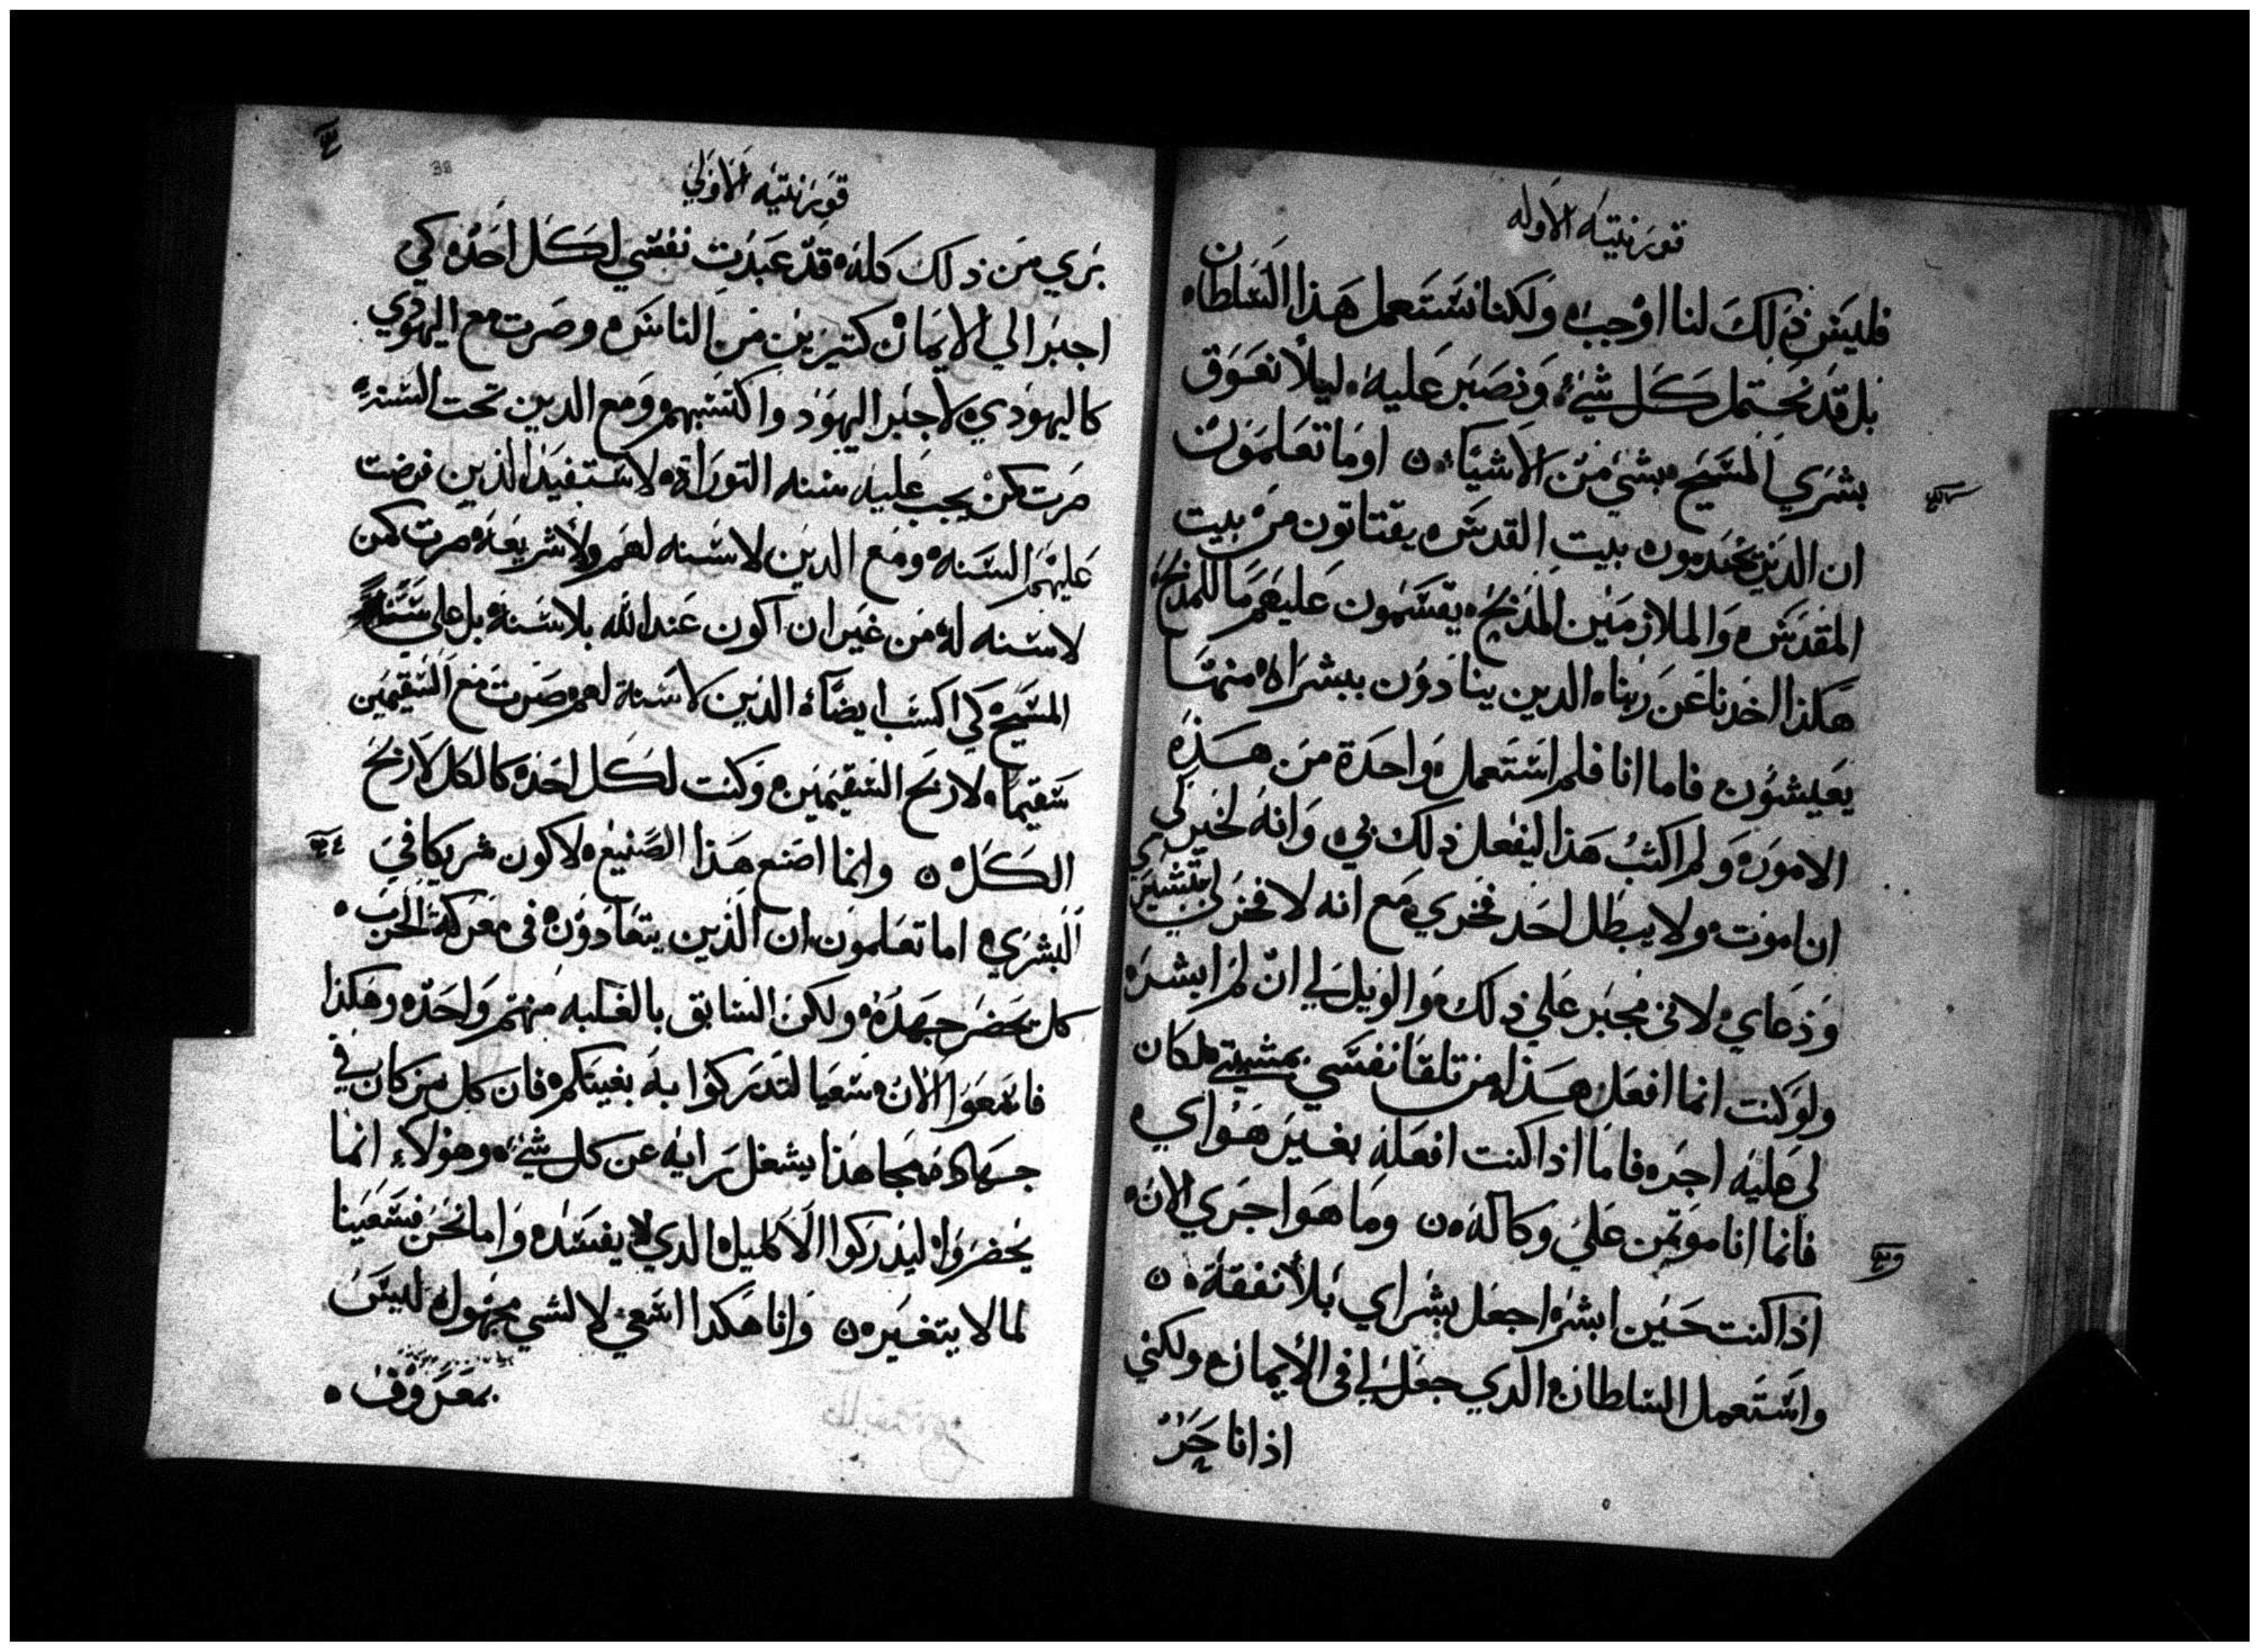 قورنتيه الاوله
فليس ذلك لنا اوجب ولكنا نستعمل هذا السلطان
بل قد نحتمل كل شيء ونصبر عليه ليلا نعوق
بشري المسيح بشي من الاشياء اوما تعلمون
ان الدين يخدمون بيت القدس يقتاتون من بيت
المقدس والملازمين المذبح يقسمون عليهم ما للمذبح
هكذا اخدنا عن ربنا الدين ينادون ببشراه منها
يعيشون فاما انا فلم استعمل واحدة من هذه
الامور ولم اكتب هذا ليفعل ذلك بي وانه لخير لي
ان اموت ولا يبطل احد فخري مع انه لا فخر لي بتبشيري
ودعاي لاني مجبر علي ذلك والويل لي ان لم ابشر
ولو كنت انما افعل هذا من تلقا نفسي بمشيتي لكان
لي عليه اجر فاما اذا كنت افعله بغير هواي
فانما انا موتمن علي وكاله وما هو اجري الان
اذا كنت حين ابشر اجعل بشراي بلا نفقة
واستعمل السلطان الدي جعل لي في الايمان ولكني
اذ انا حر
قورنتيه الاولي
بري من ذلك كله قد عبدت نفسي لكل احد كي
اجبر الي الايمان كتيرين من الناس وصرت مع اليهودي
كاليهودي لاجبر اليهود واكتسبهم ومع الدين تحت السنه
صرت كمن يجب عليه سنه التوراة لاستفيد الذين فرضت
عليهم السنه ومع الدين لا سنه لهم ولا شريعه صرت كمن
لا سنه له من غير ان اكون عند الله بلا سنة بل علي سنة
المسيح كي اكسب ايضا الدين لا سنة لهم وصرت مع السقيمين
سقيما لاربح السقيمين وكنت لكل احد كالكل لاربح
الكل وانما اصنع هذا الصنيع لاكون شريكا في
البشري اما تعلمون ان الذين يتعادون في معركة الحرب
كل يحضر جهده ولكن السابق بالغلبه منهم واحد وهكذا
فاسعوا الان سعيا لتدركوا به بغيتكم فان كل من كان في
جهاد مجاهدا يشغل رايه عن كل شي وهولاء انما
يحضروا ليدركوا الاكليل الدي يفسد واما نحن فسعينا
لما لا يتغير وانا هكدا اسعي لا لشي مجهول ليس
بمعروف